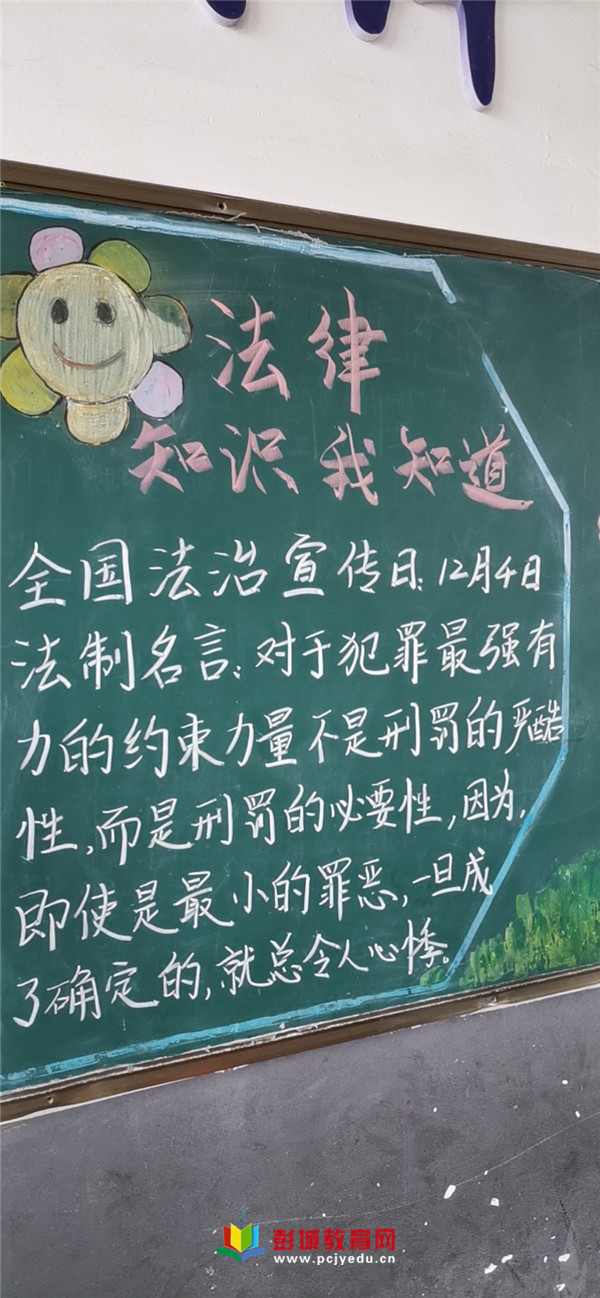 法律
知识我知道
全国法治宣传日:12月4日
法制名言:对于犯罪最强有
力的约束力量不是刑罚的严酷
性,而是刑罚的必要性,因为,
即使是最小的罪恶,一旦成
了确定的,就总令人心悸。
彭城教育网
www.pcjyedu.cn